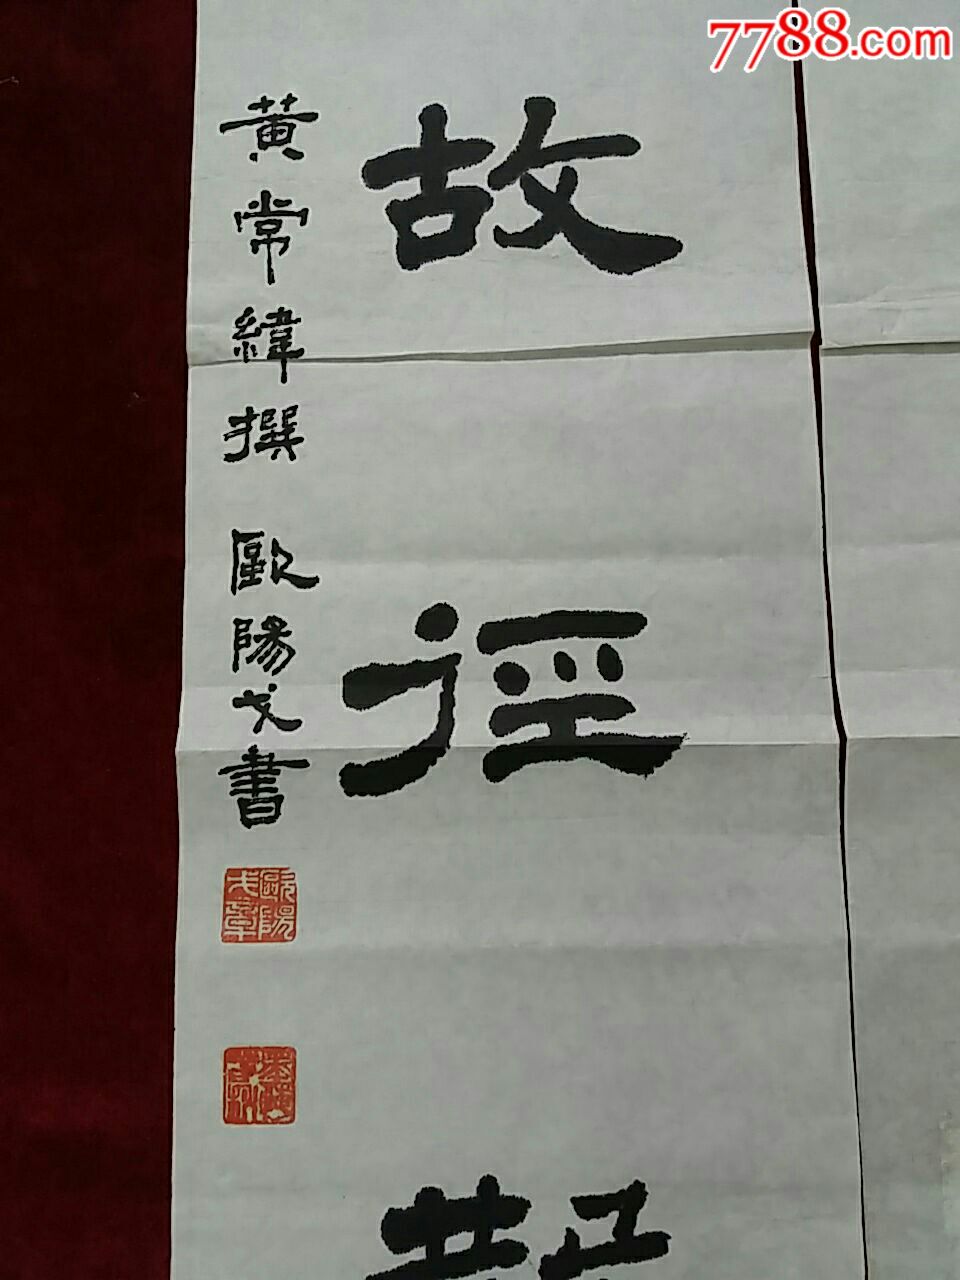 7788.com
故径
黄常緯撰 歐陽戈書
歐陽戈章